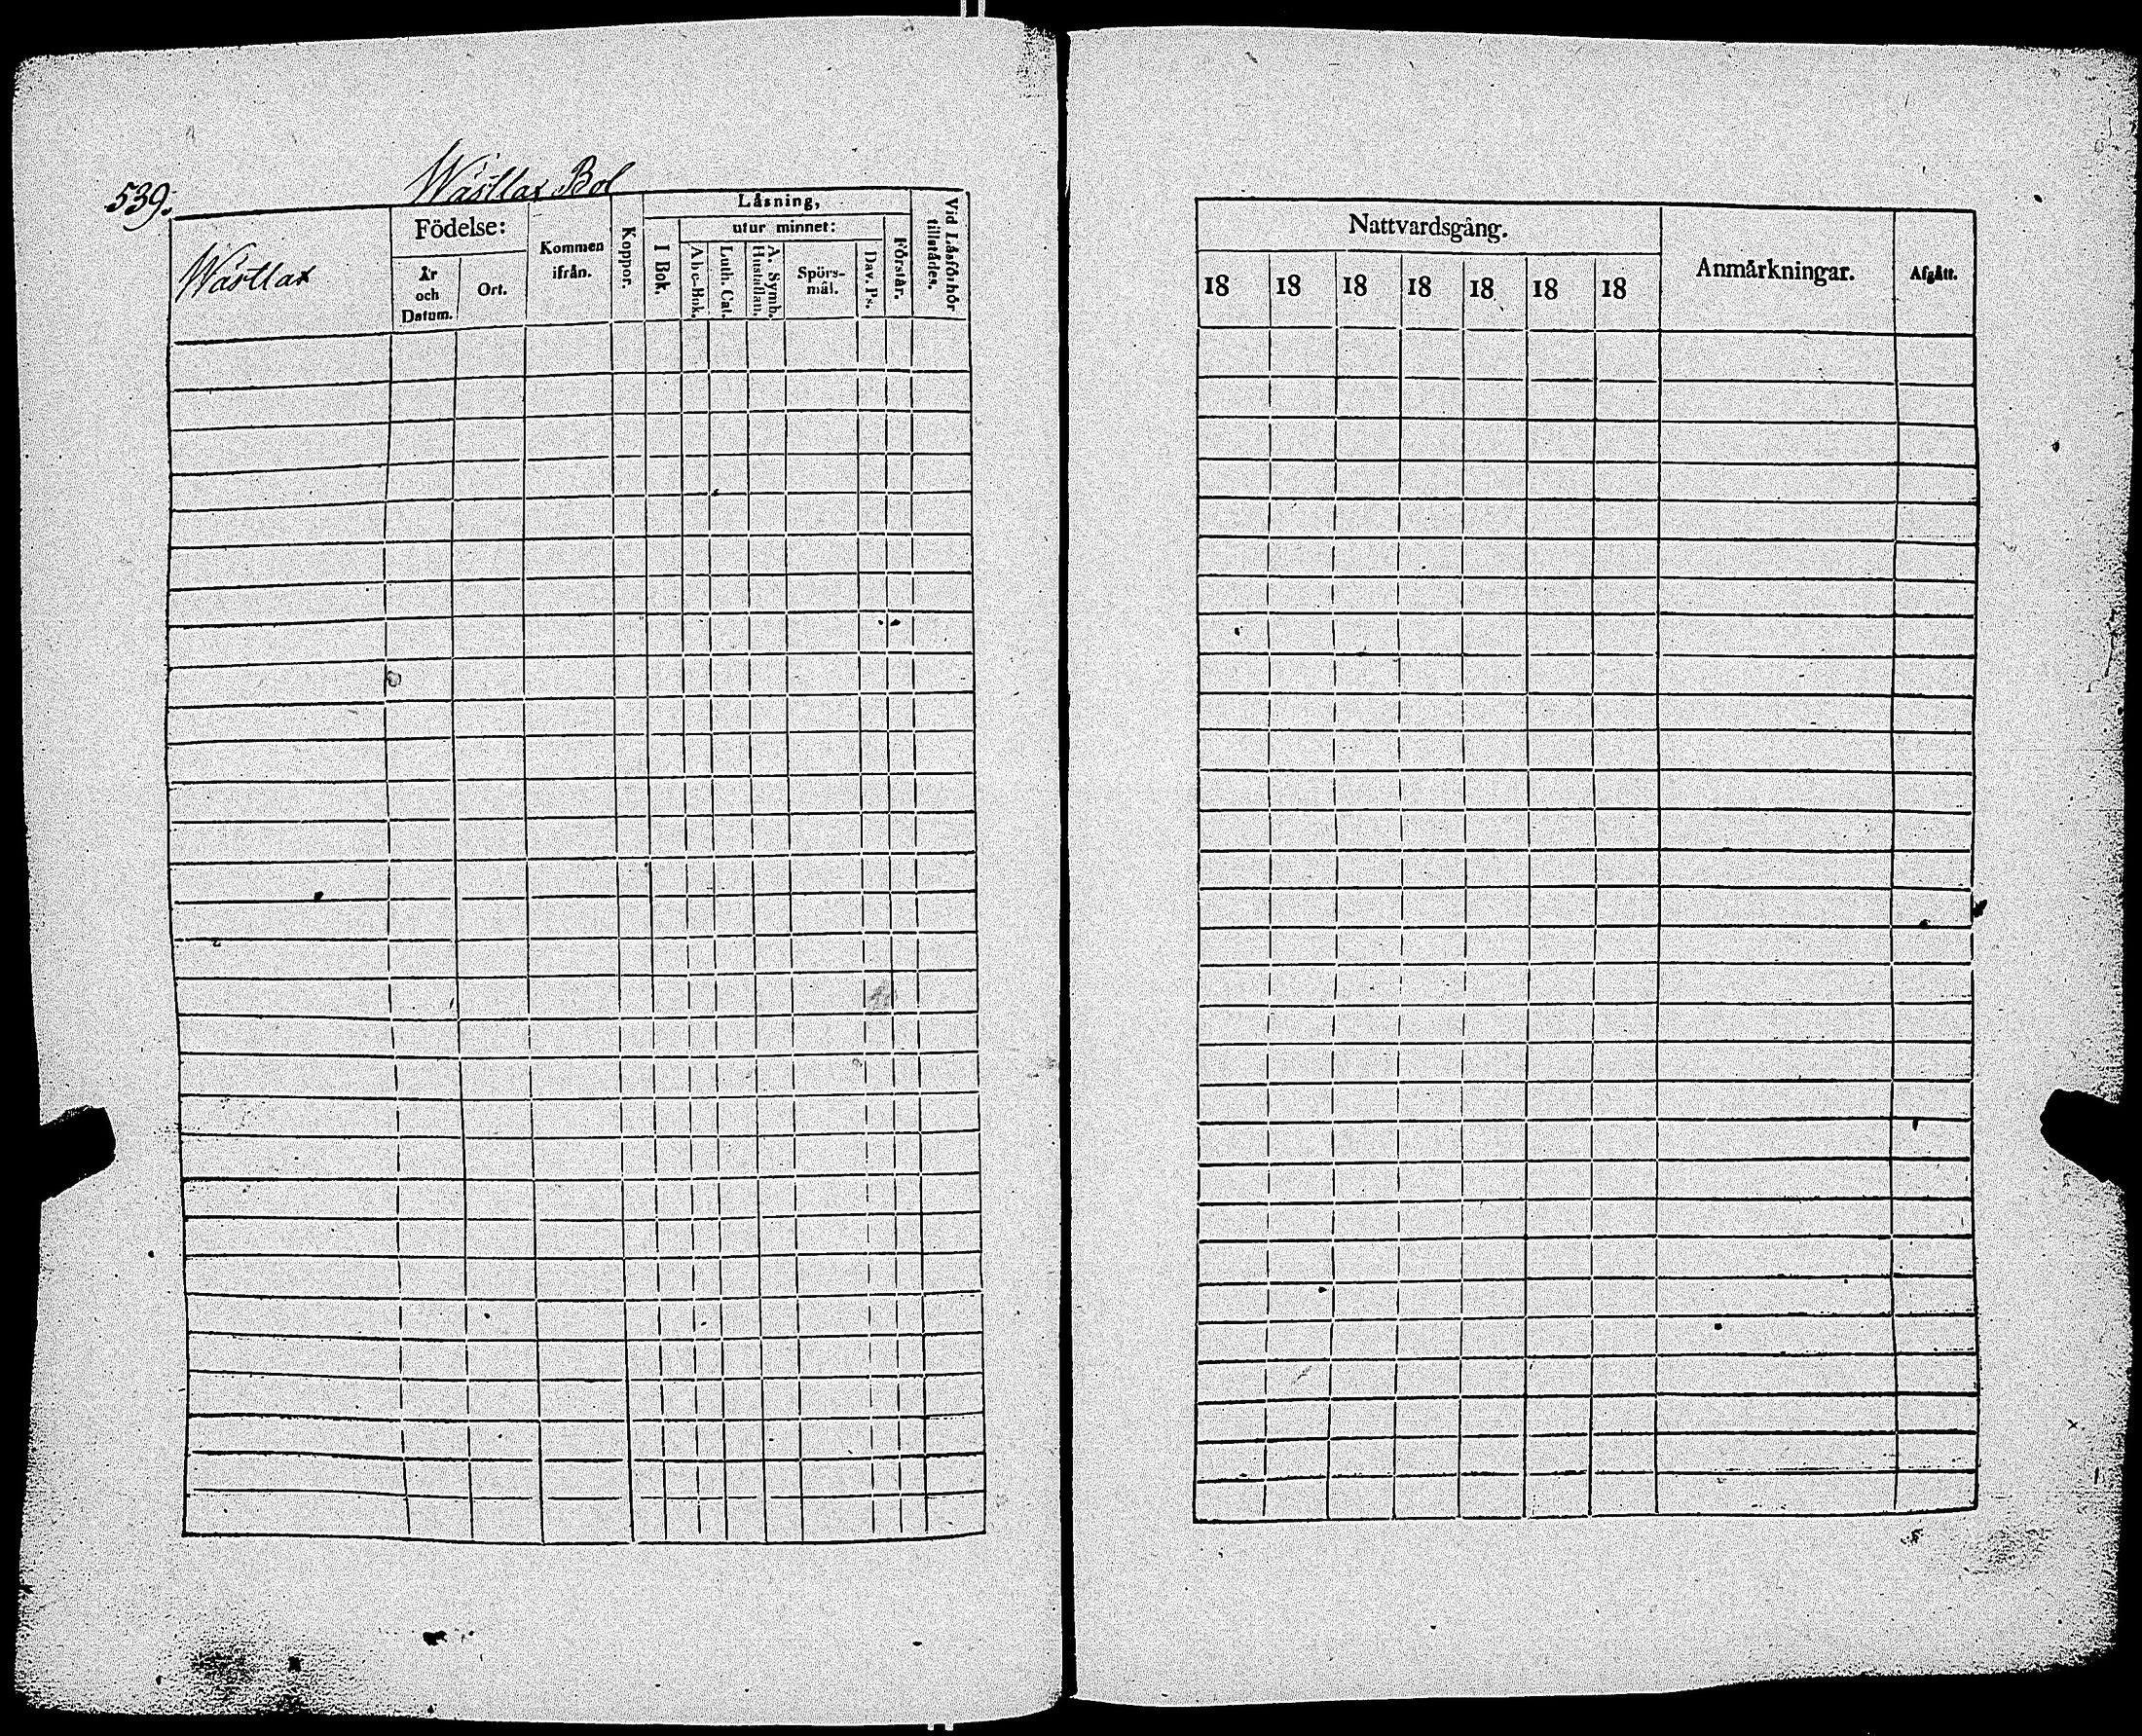 539.
Wästlax Bol
Wästlax
Födelse:
År och Datum.
Ort.
Kommen ifrån.
Koppor.
Låsning,
I Bok.
utur minnet:
Abc-Bok.
Luth. Cat.
A. Symb. Hustaflan.
Spörs-
mål.
Dav. Ps.
Förstår.
Vid Låsförhör tillstädes.
Nattvardsgång.
18 18 18 18 18 18 18
Anmårkningar.
Afgått.